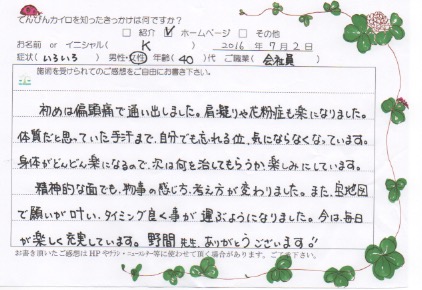 てんびんカイロを知ったきっかけは何ですか?
□ 紹介 ☑ ホームページ □ その他
お名前 or イニシャル( K ) 2016年7月2日
症状(いろいろ) 男性・女性 年齢(40)代 ご職業(会社員)
施術を受けられてのご感想をご自由にお書き下さい。
初めは偏頭痛で通い出しました。肩凝りや花粉症も楽になりました。
体質だと思っていた手汗まで、自分でも忘れる位、気にならなくなっています。
身体がどんどん楽になるので、次は何を治してもらうか楽しみにしています。
精神的な面でも、物事の感じ方、考え方が変わりました。また、宝地図
で願いが叶い、タイミング良く事が運ぶようになりました。今は、毎日
が楽しく充実しています。野間先生、ありがとうございます!!
お書き頂いたご感想はHPやチラシ・ニュースレター等に使わせて頂く場合があります。ご了承下さい。